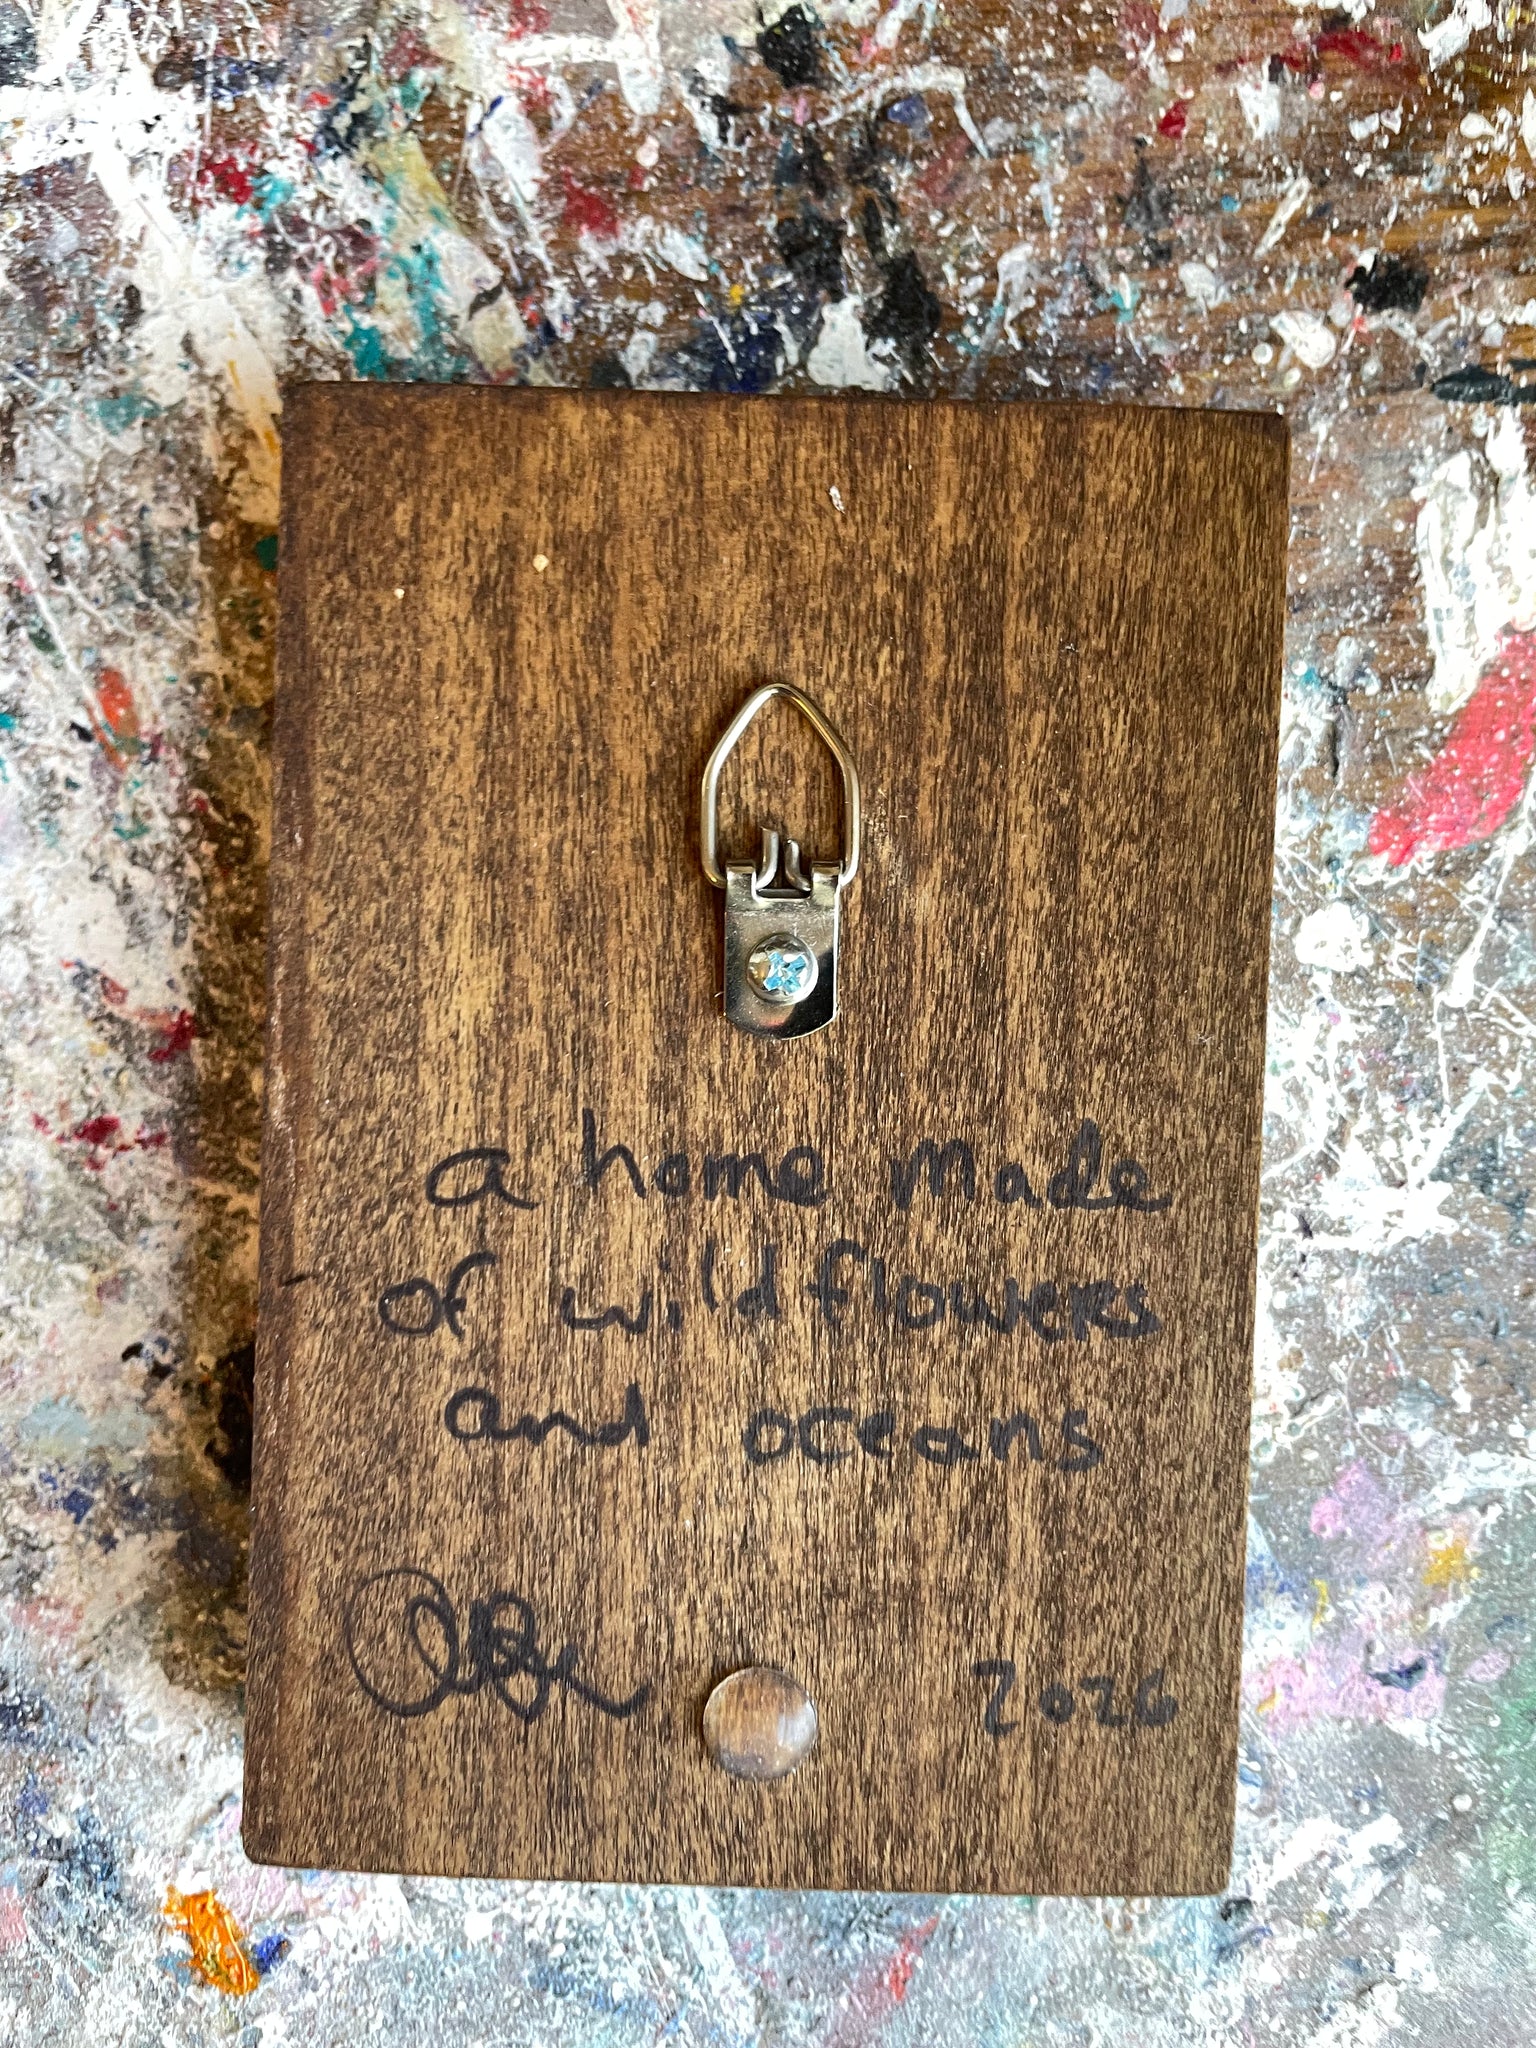 a home made
of wildflowers
and oceans
2026